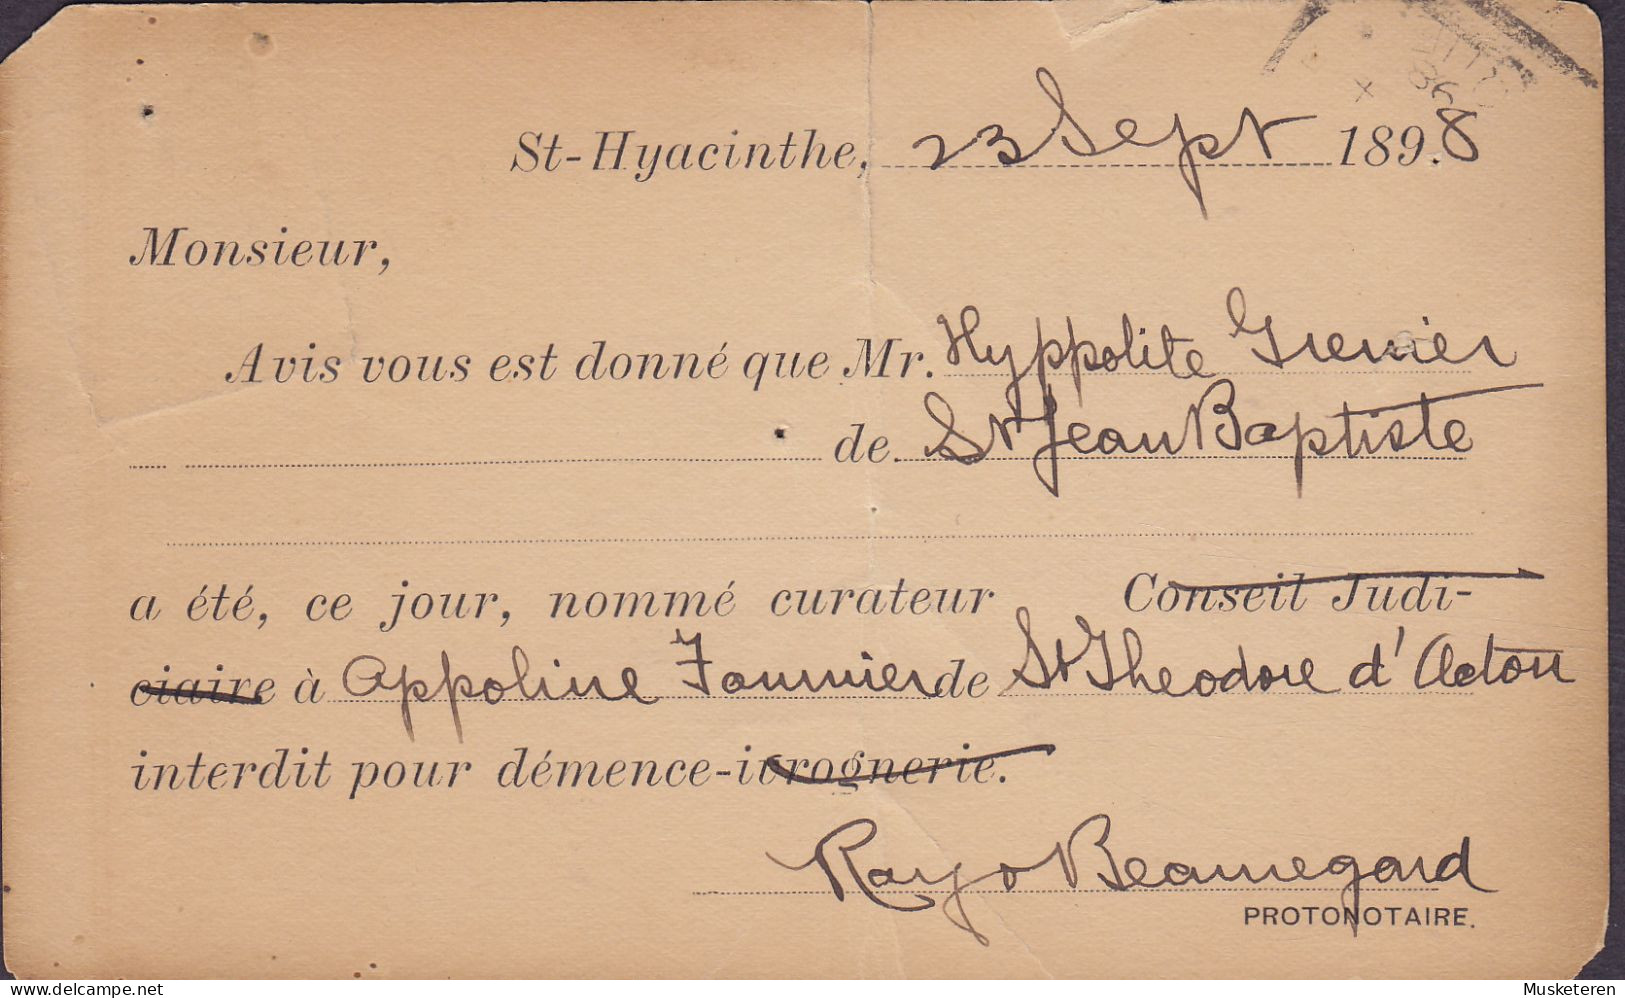 St-Hyacinthe, 23 Sept 1898
Monsieur,
Avis vous est donné que Mr. Hyppolite Grenier
de St Jean Baptiste
a été, ce jour, nommé curateur Conseil Judi-
ciaire à Appoline Fournier de St Theodore d'Acton
interdit pour démence-ivrognerie.
Roy & Beauregard
PROTONOTAIRE.
delcampe.net
Musketeren